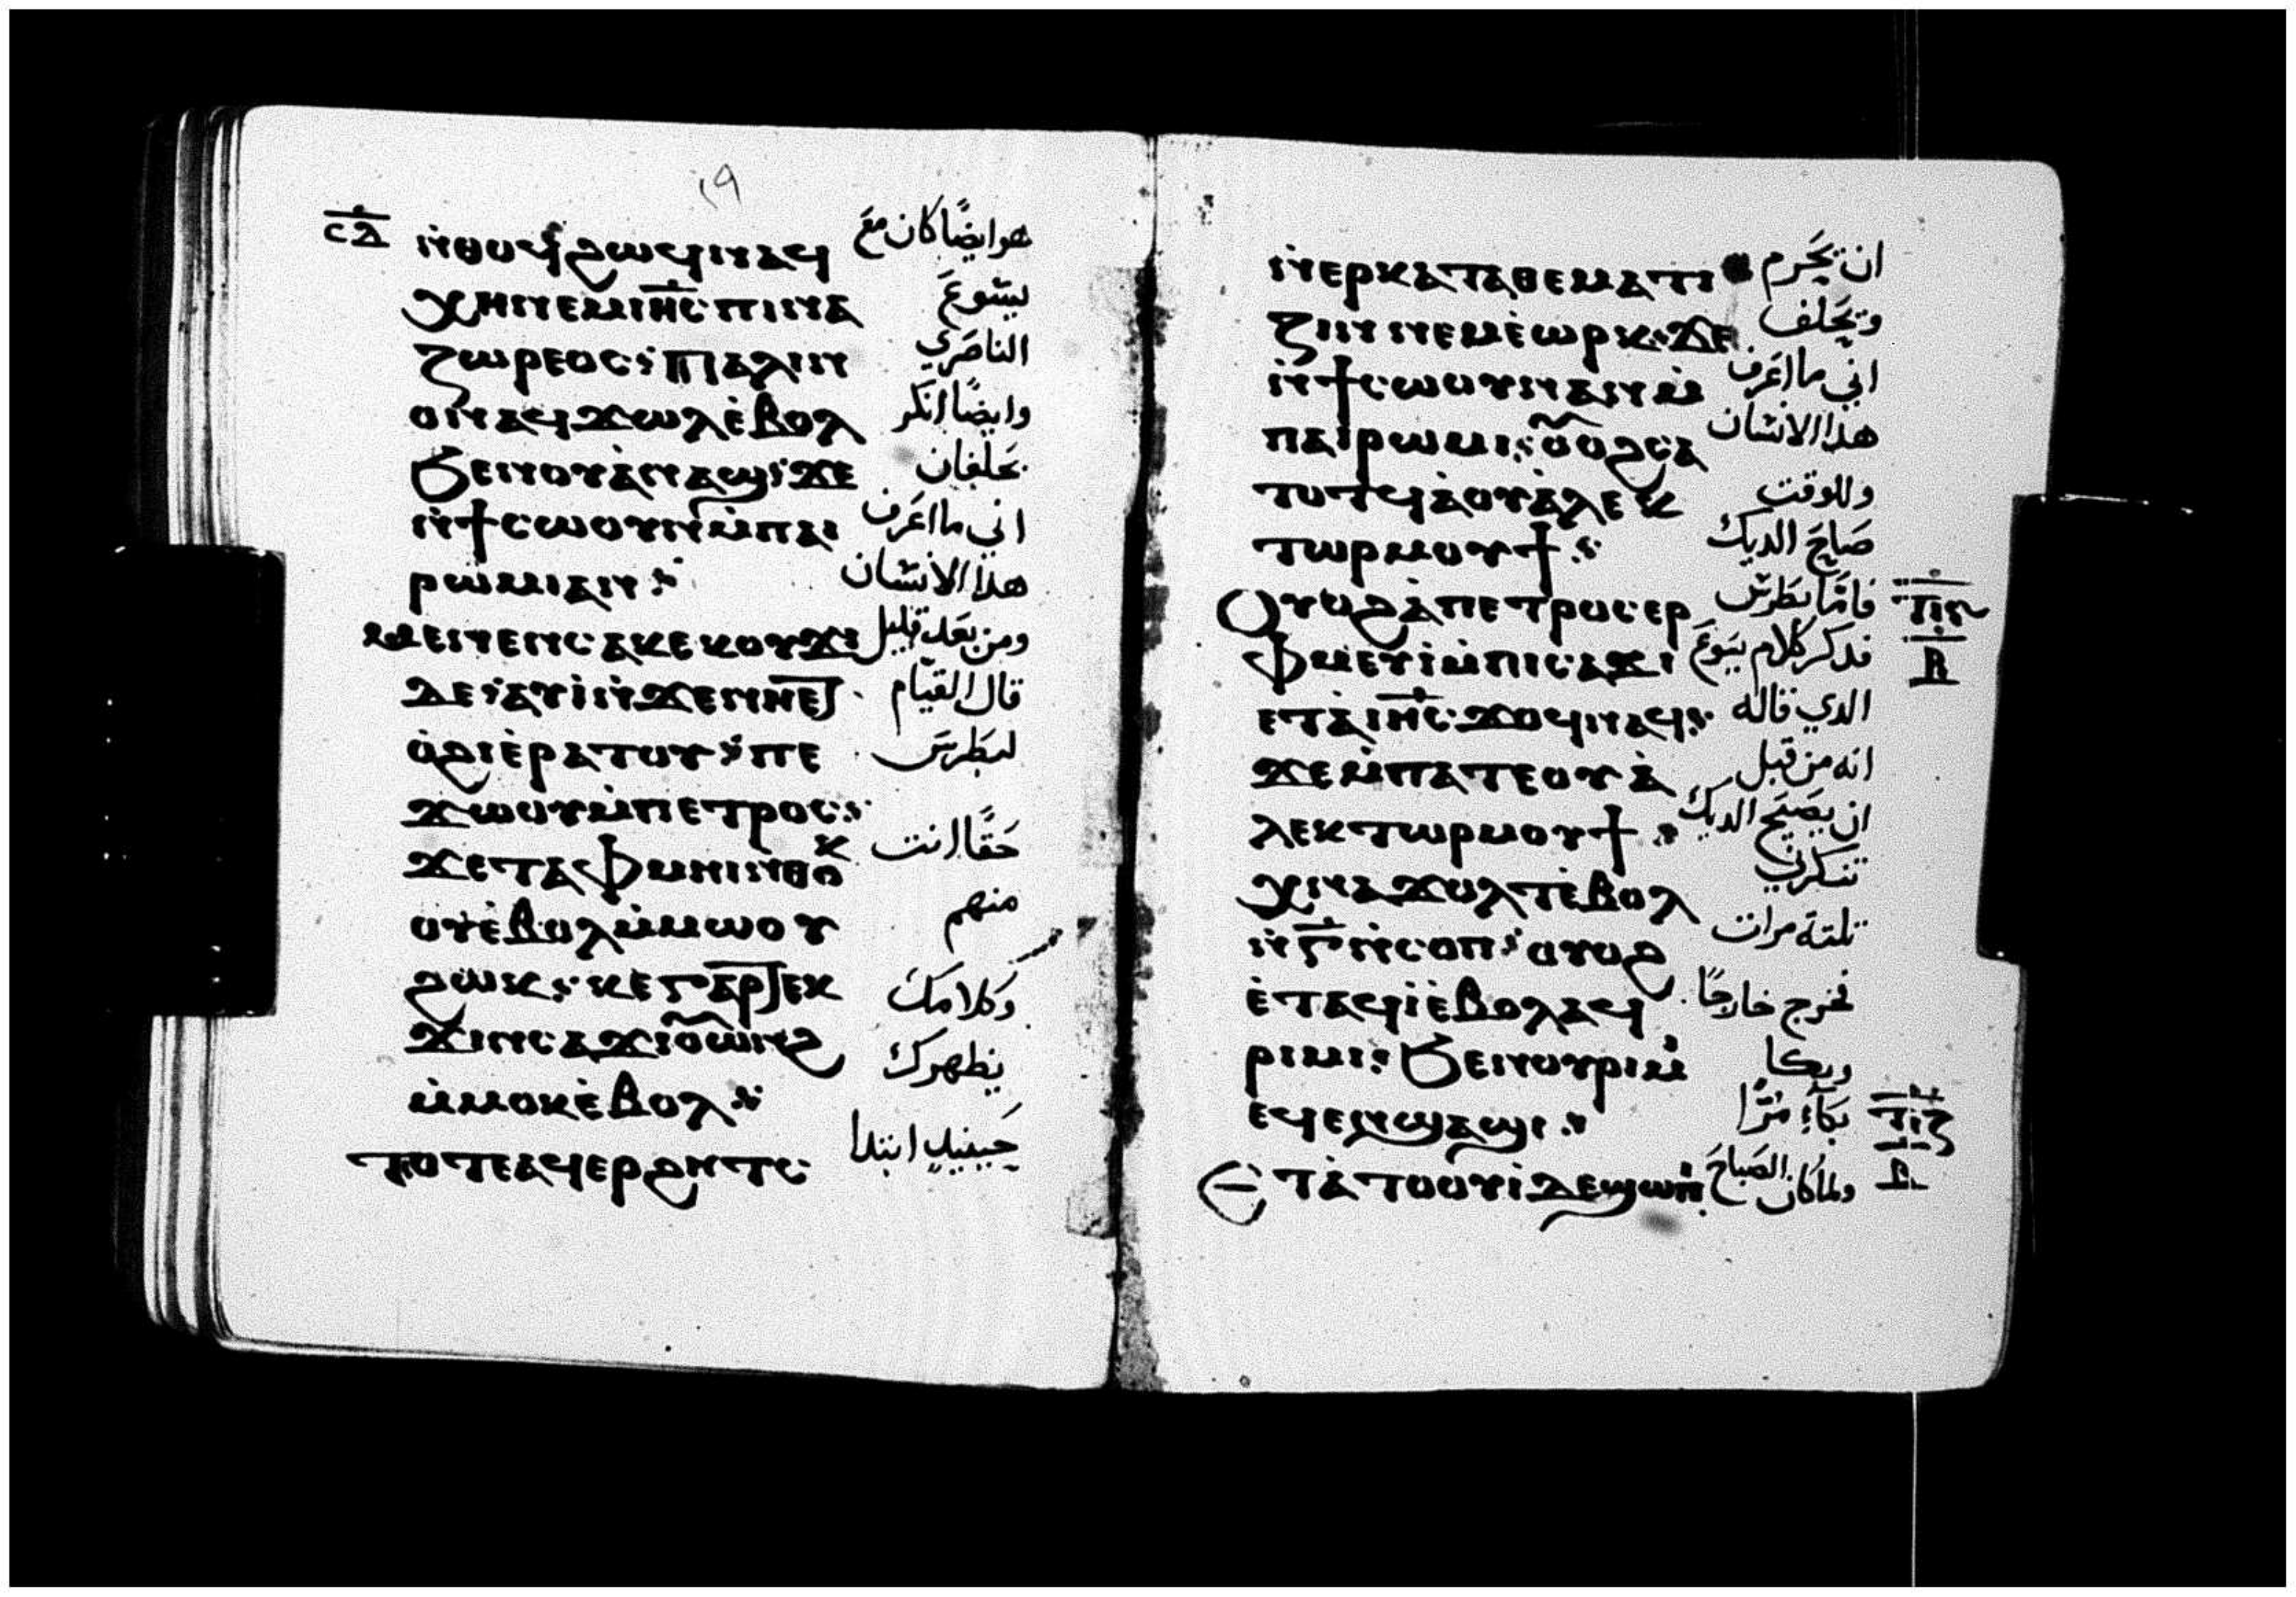 ١٩
ⲥⲇ
ⲛ̇ⲑⲟϥϩⲱϥⲛⲁϥ
ⲭⲏⲛⲉⲙⲓⲏ̅ⲥ̅ⲡⲓⲛⲁ
ⲍⲱⲣⲉⲟⲥ: ⲡⲁⲗⲓⲛ
ⲟⲛⲁϥϫⲱⲗⲉ̇ⲃⲟⲗ
ϧⲉⲛⲟⲩⲁ̇ⲛⲁϣ: ϫⲉ
ⲛ̇ϯⲥⲱⲟⲩⲛⲙ̇ⲡⲁⲓ
ⲣⲱⲙⲓⲁⲛ:
ⲙⲉⲛⲉⲛⲥⲁⲕⲉⲕⲟⲩϫⲓ
ⲇⲉ: ⲁⲩⲓ̇ⲛ̇ϫⲉⲛⲏⲉⲧ
ⲟ̇ϩⲓⲉ̇ⲣⲁⲧⲟⲩ: ⲡⲉ
ϫⲱⲟⲩⲙ̇ⲡⲉⲧⲣⲟⲥ:
ϫⲉⲧⲁⲫⲙⲏⲓⲛ̇ⲑⲟⲕ
ⲟⲩⲉ̇ⲃⲟⲗⲙ̇ⲙⲱⲟⲩ
ϩⲱⲕ: ⲕⲉⲅⲁⲣⲡⲉⲕ
ϫⲓⲛⲥⲁϫⲓⲟⲩⲱⲛϩ
ⲙ̇ⲙⲟⲕⲉ̇ⲃⲟⲗ:
ⲧⲟⲧⲉⲁϥⲉⲣϩⲏⲧⲥ
هو ايضًا كان مع
يسوع
الناصري
وايضًا انكر
بحلفان
اني ما اعرف
هذا الانسان
ومن بعد قليل
قال القيام
لبطرس
حقًا انت
منهم
وكلامك
يظهرك
حينيدٍ ابتدا
ⲛ̇ⲉⲣⲕⲁⲧⲁⲑⲉⲙⲁⲧⲓ
ⲍⲓⲛ ⲛⲉⲙⲉ̇ⲱⲣⲕ: ϫⲉ
ⲛ̇ϯⲥⲱⲟⲩⲛⲁⲛⲙ̇
ⲡⲁⲓⲣⲱⲙⲓ: ⲟⲩⲟϩⲥⲁ
ⲧⲟⲧϥⲁ̇ⲟⲩⲁ̇ⲗⲉⲕ
ⲧⲱⲣⲙⲟⲩϯ:
ⲟⲩⲟϩⲁ̇ⲡⲉⲧⲣⲟⲥⲉⲣ
ⲫⲙⲉⲩⲓ̇ⲙ̇ⲡⲓⲥⲁϫⲓ
ⲉⲧⲁ̇ⲓⲏ̅ⲥ̅ϫⲟϥⲛⲁϥ:
ϫⲉⲙ̇ⲡⲁⲧⲉⲟⲩⲁ̇
ⲗⲉⲕⲧⲱⲣⲙⲟⲩϯ:
ⲭⲛⲁϫⲟⲗⲧⲉ̇ⲃⲟⲗ
ⲛ̇ⲅ̅ⲛ̇ⲥⲟⲡ: ⲟⲩⲟϩ
ⲉ̇ⲧⲁϥⲓ̇ⲉ̇ⲃⲟⲗⲁϥ
ⲣⲓⲙⲓ: ϧⲉⲛⲟⲩⲣⲓⲙⲓ
ⲉϥⲉⲛϣⲁϣⲓ:
ⲉ̇ⲧⲁ̇ⲧⲟⲟⲩⲓ̇ⲇⲉϣⲱⲡⲓ
ان يحرم
ويحلف
اني ما اعرف
هذا الانسان
وللوقت
صاح الديك
فاما بطرس
فدكر كلام يسوع
الدي قاله
انه من قبل
ان يصيح الديك
تنكرني
تلتة مرات
فخرج خارجًا
وبكا
بكآء مرًا
ولما كان الصباح
ⲧⲓⲍ